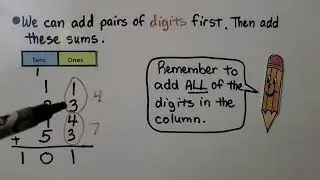 We can add pairs of digits first. Then add
these sums.
Tens Ones
1
1 1
3 4
4
+ 5 3 7
1 0 1
Remember to
add ALL of the
digits in the
column.